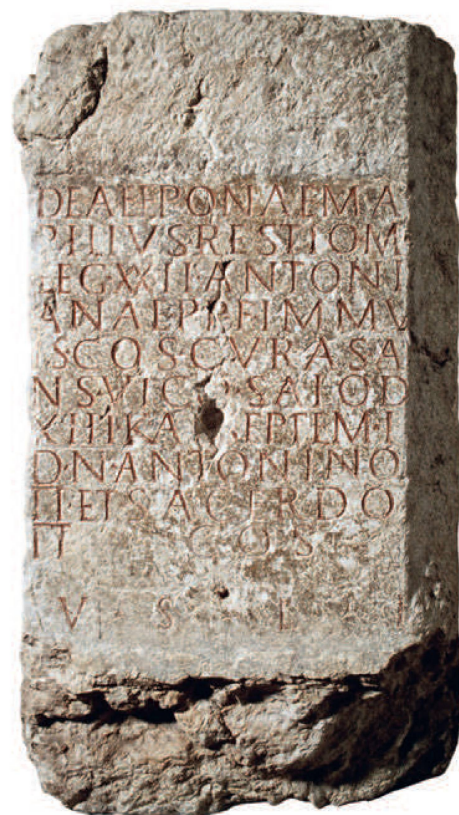 DEAE EPONAE MA
PILIVS RESTIO M
LEG XXII ANTONI
ANAE P P F IMMV
IS COS CVRAS A
NS VICO SALOD
XIIII KA EPTEM
D N ANTONINO
II ET SACERDO
II COS
V S L